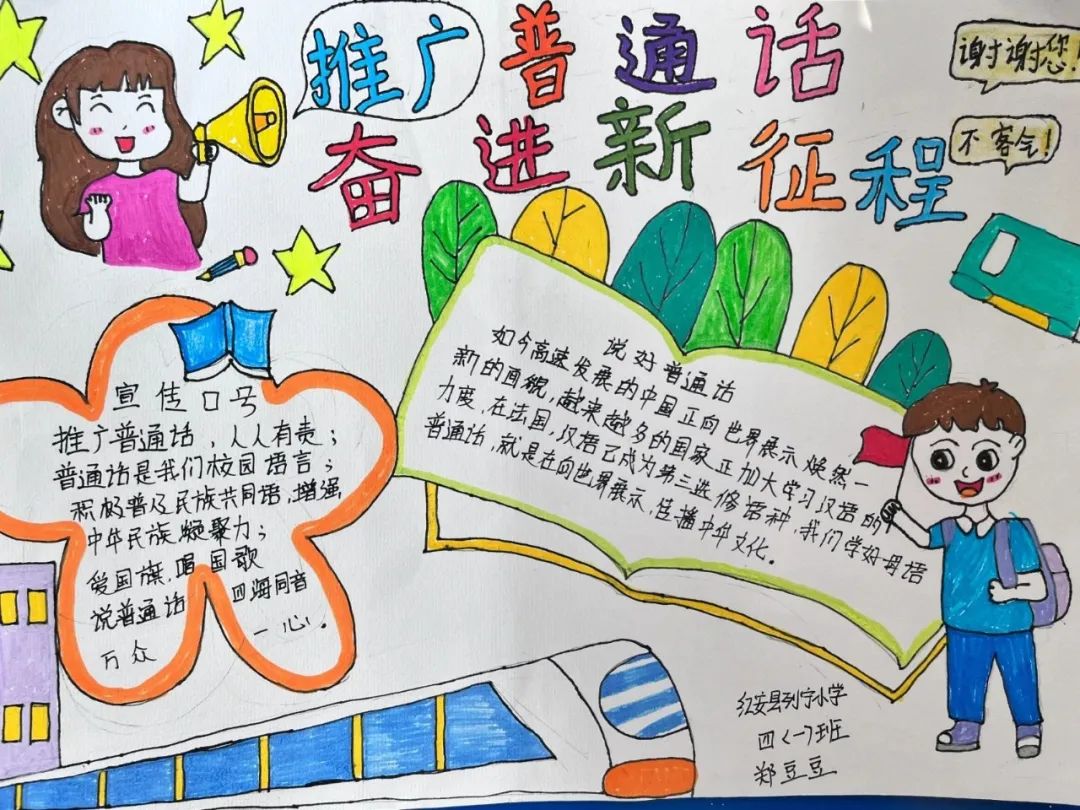 推广普通话
奋进新征程
谢谢您!
不客气!
宣传口号
推广普通话,人人有责;
普通话是我们校园语言;
积极普及民族共同语,增强
中华民族凝聚力;
爱国旗,唱国歌
说普通话 四海同音
万众 一心。
说好普通话
如今高速发展的中国正向世界展示焕然一
新的面貌,越来越多的国家正加大学习汉语的
力度,在法国,汉语已成为第三选修语种,我们学好母语
普通话,就是在向世界展示,传播中华文化。
红安县列宁小学
四(一)班
郑豆豆